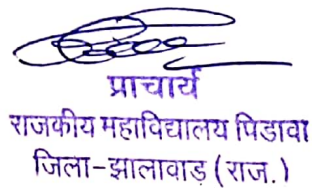 प्राचार्य
राजकीय महाविद्यालय पिडावा
जिला-झालावाड़ (राज.)